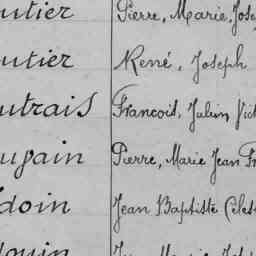 utier Pierre, Marie, Jose
utier René, Joseph
utrais Francois, Julien Vic
ugain Pierre, Marie Jean Fr
doin Jean Baptiste Celest